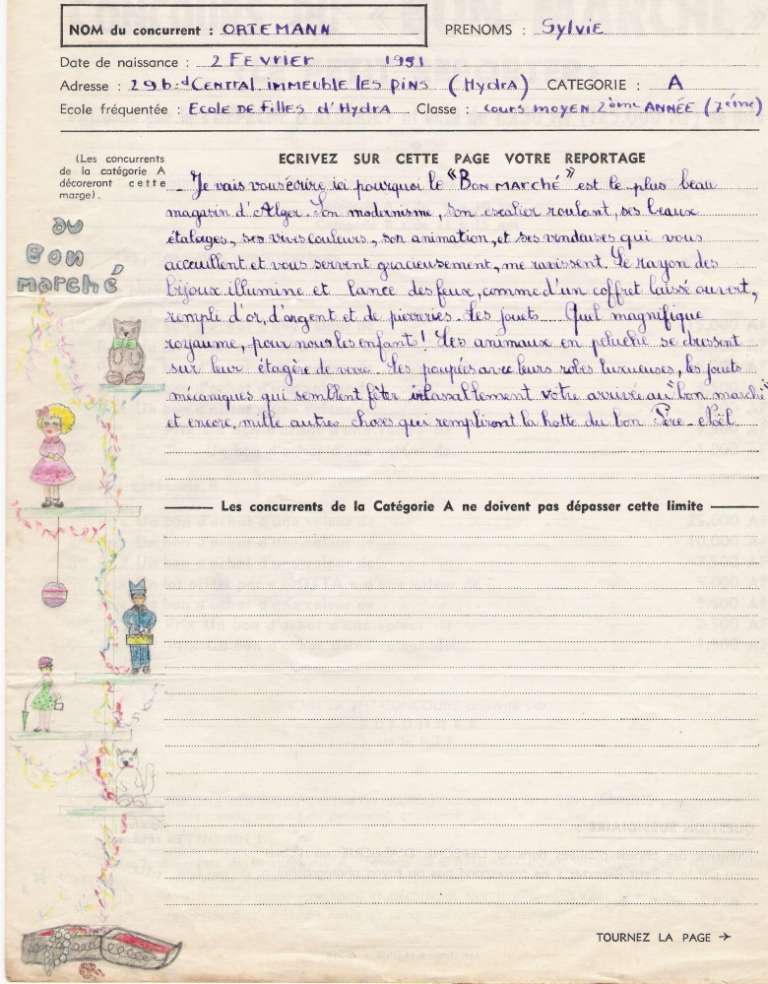 NOM du concurrent : ORTEMANN PRENOMS : Sylvie
Date de naissance : 2 FEVRIER 1951
Adresse : 29 b.d CENTRAL IMMEUBLE LES PINS (HYDRA) CATEGORIE : A
Ecole fréquentée : ECOLE DE FILLES d'HYDRA Classe : COURS MOYEN 2ème ANNÉE (7ème)
(Les concurrents de la catégorie A décoreront cette marge).
ECRIVEZ SUR CETTE PAGE VOTRE REPORTAGE
Je vais vous écrire ici pourquoi le "BON MARCHÉ" est le plus beau
magasin d'Alger. Son modernisme, son escalier roulant, ses beaux
étalages, ses vives couleurs, son animation, et ses vendeuses qui vous
acceuillent et vous servent gracieusement, me ravissent. Le rayon des
bijoux illumine et lance des feux, comme d'un coffret laissé ouvert,
rempli d'or, d'argent et de pierreries. Les jouets... Quel magnifique
royaume, pour nous les enfants! Les animaux en peluche se dressent
sur leur étagère de verre. Les poupées avec leurs robes luxueuses, les jouets
mécaniques qui semblent fêter inlassablement votre arrivée au "bon marché"
et encore, mille autres choses qui rempliront la hotte du bon Père-Noël.
AU
BON
MARCHÉ
Les concurrents de la Catégorie A ne doivent pas dépasser cette limite
TOURNEZ LA PAGE →